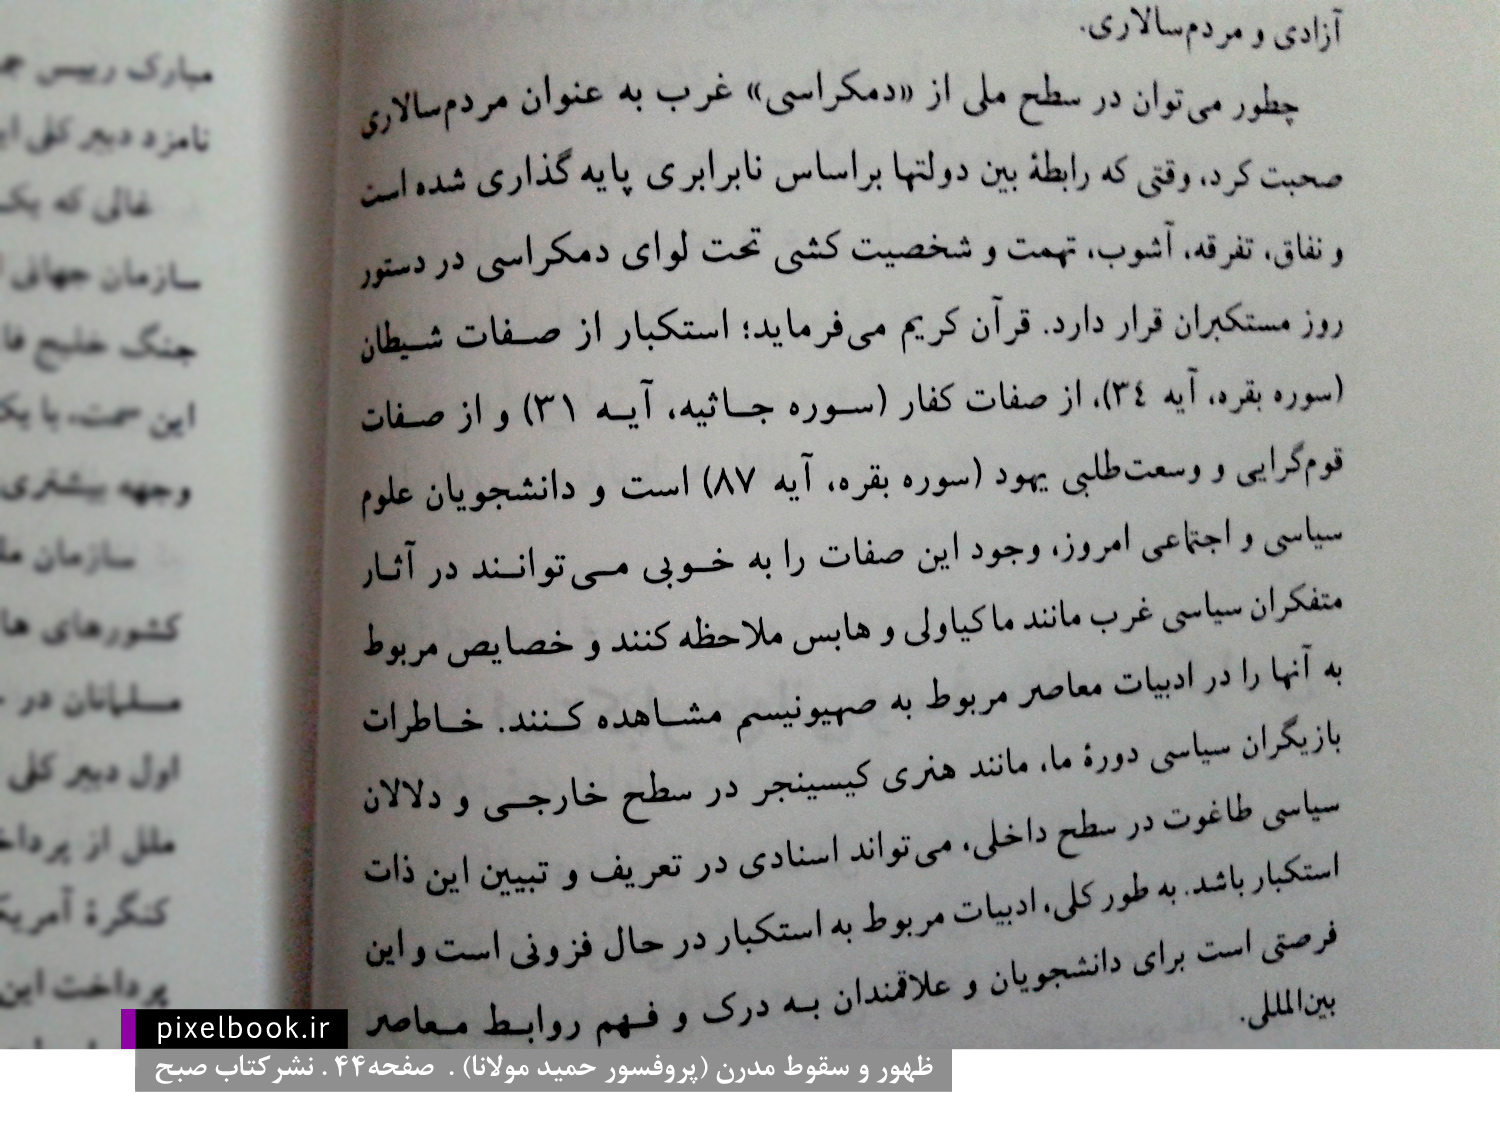 آزادی و مردم‌سالاری.
چطور می‌توان در سطح ملی از «دمکراسی» غرب به عنوان مردم‌سالاری
صحبت کرد، وقتی که رابطهٔ بین دولتها براساس نابرابری پایه گذاری شده است
و نفاق، تفرقه، آشوب، تهمت و شخصیت کشی تحت لوای دمکراسی در دستور
روز مستکبران قرار دارد. قرآن کریم می‌فرماید؛ استکبار از صفات شیطان
(سوره بقره، آیه ٣٤)، از صفات کفار (سوره جاثیه، آیه ٣١) و از صفات
قوم‌گرایی و وسعت‌طلبی یهود (سوره بقره، آیه ٨٧) است و دانشجویان علوم
سیاسی و اجتماعی امروز، وجود این صفات را به خوبی می‌توانند در آثار
متفکران سیاسی غرب مانند ماکیاولی و هابس ملاحظه کنند و خصایص مربوط
به آنها را در ادبیات معاصر مربوط به صهیونیسم مشاهده کنند. خاطرات
بازیگران سیاسی دورهٔ ما، مانند هنری کیسینجر در سطح خارجی و دلالان
سیاسی طاغوت در سطح داخلی، می‌تواند اسنادی در تعریف و تبیین این ذات
استکبار باشد. به طور کلی، ادبیات مربوط به استکبار در حال فزونی است و این
فرصتی است برای دانشجویان و علاقمندان به درک و فهم روابط معاصر
بین‌المللی.
مبارک رییس
نامزد دبیر کلی
غالی که یک
سازمان جهانی
جنگ خلیج
این سمت، با یک
وجهه بیشتری
سازمان
کشورهای
مسلمانان در
اول دبیر کلی
ملل از
کنگرهٔ
پرداخت این
pixelbook.ir
ظهور و سقوط مدرن (پروفسور حمید مولانا) . صفحه۴۴ . نشر کتاب صبح